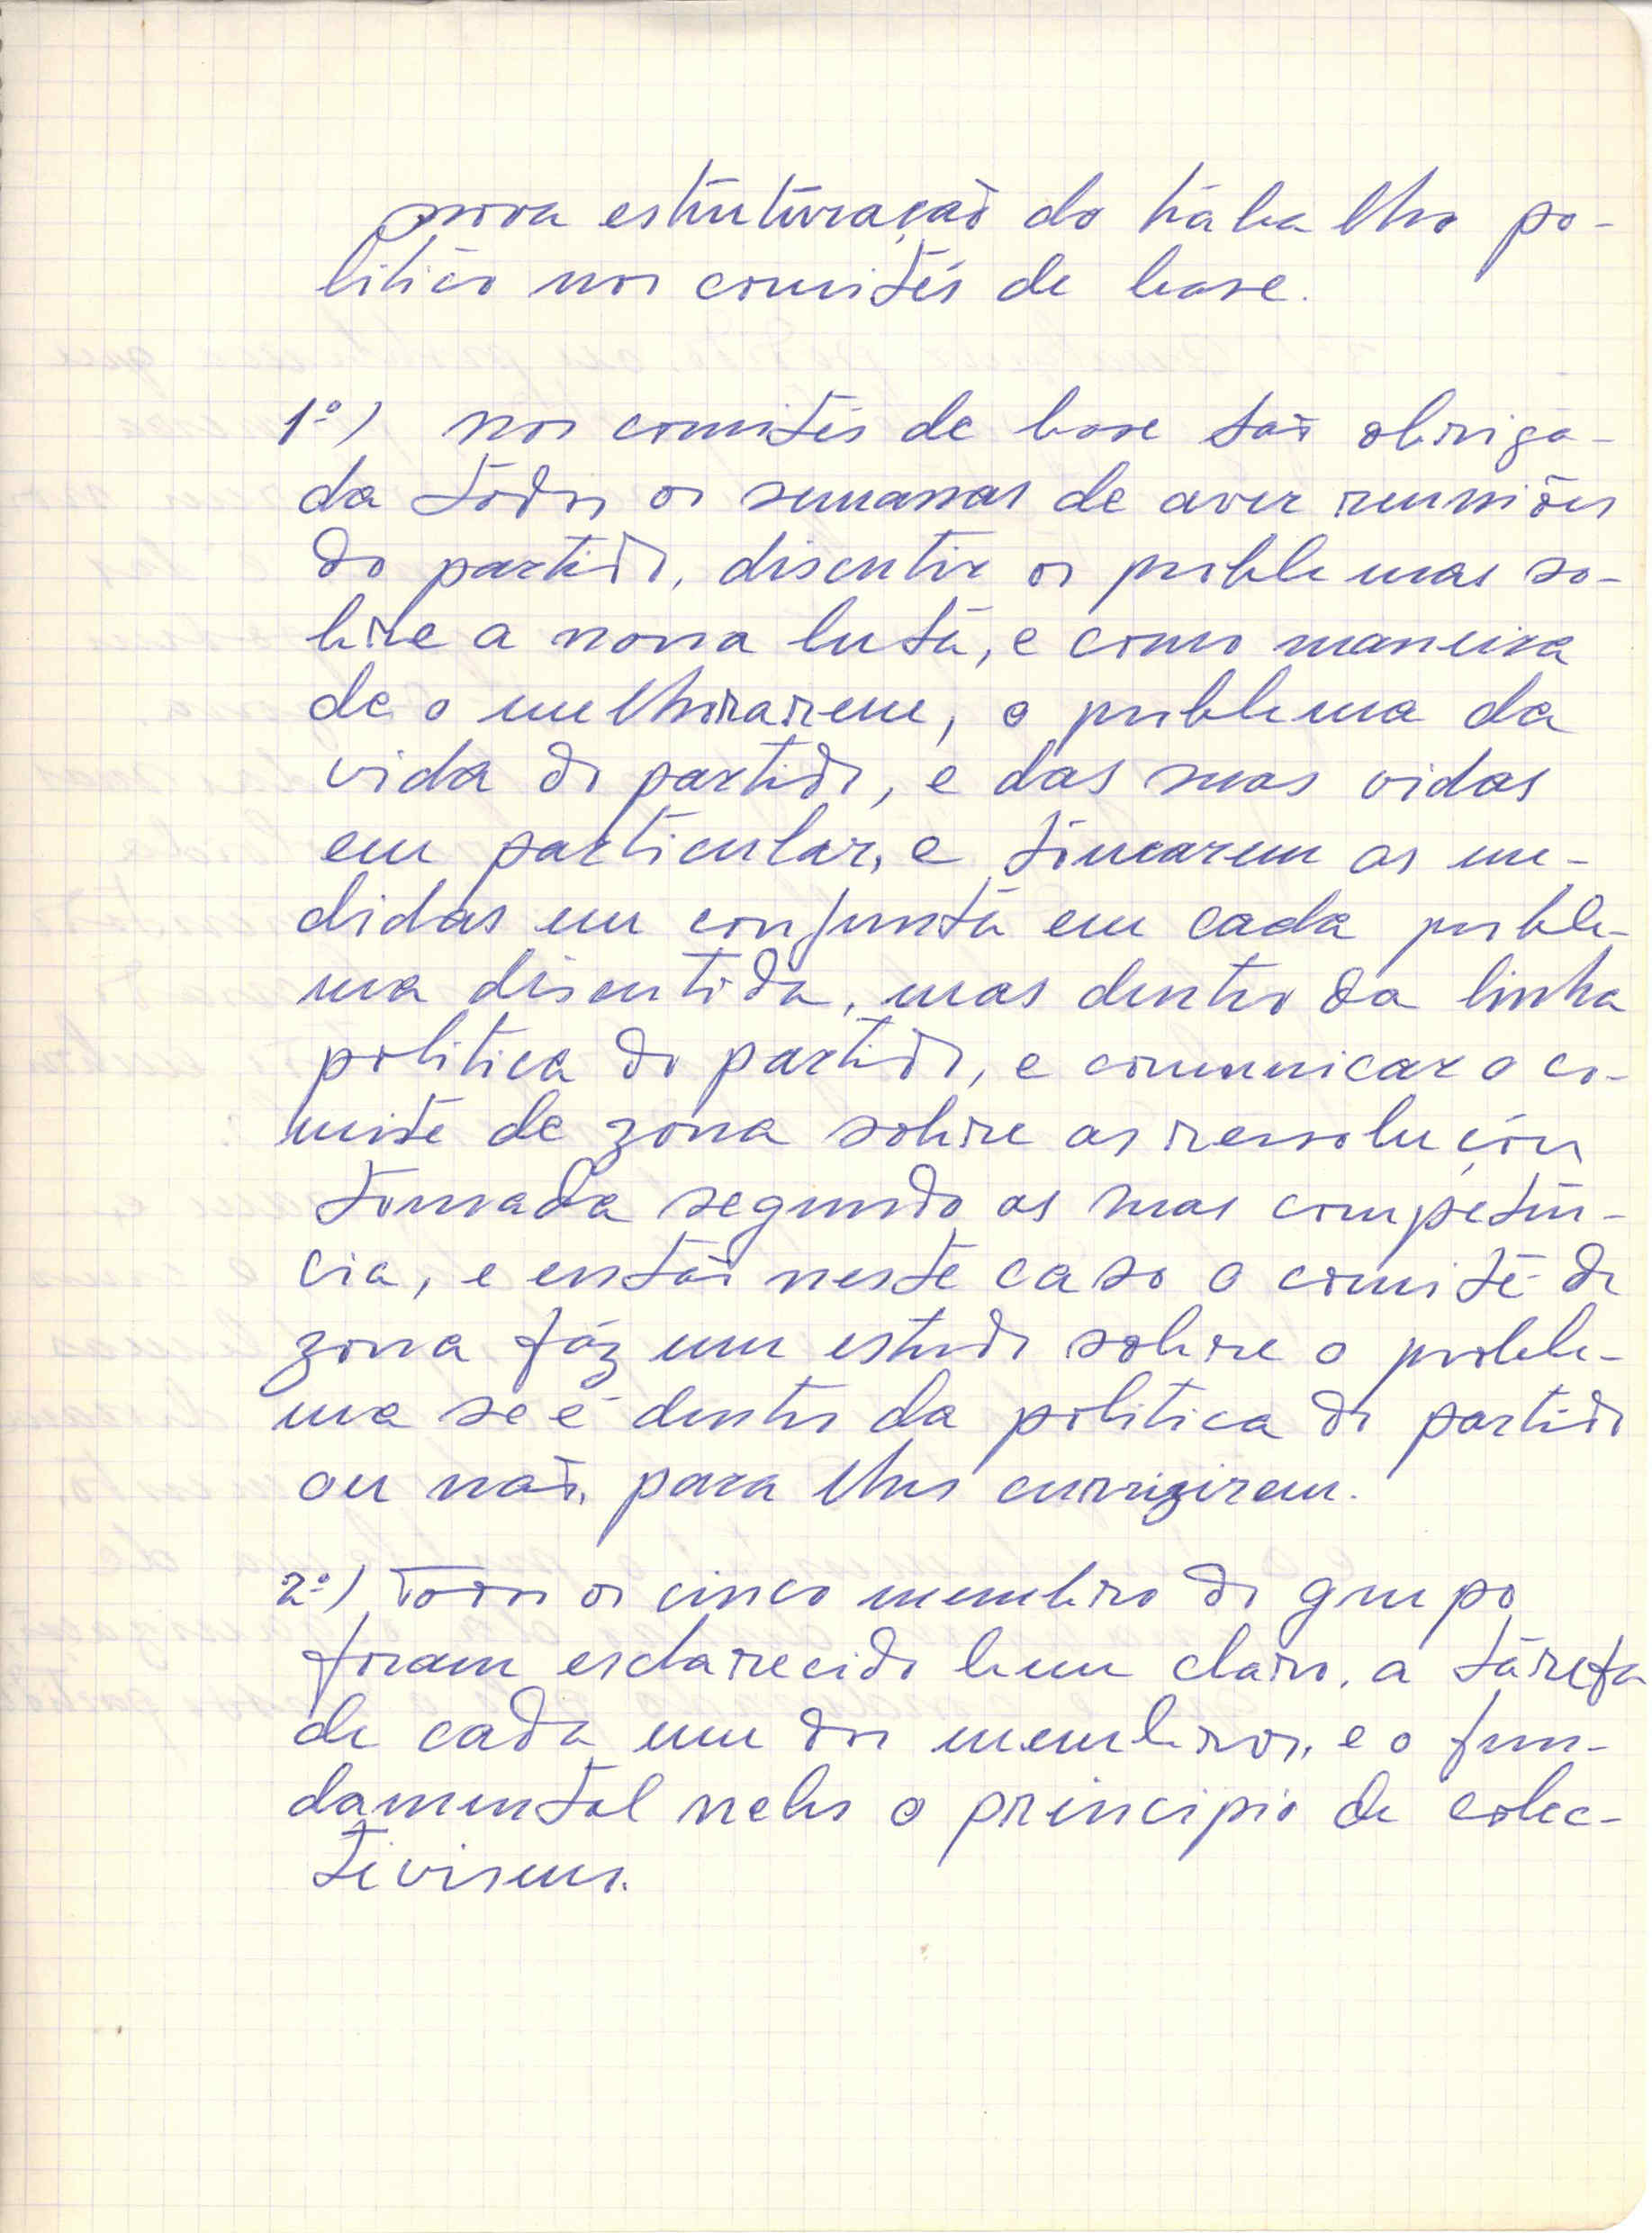 nova estruturação do trabalho po-
litico nos comités de base.
1º) nos comités de base são obriga-
da todos os semanas de aver reuniões
do partido, discutir os problemas so-
bre a nossa luta, e como maneira
de o melhorarem, o problema da
vida do partido, e das suas vidas
em particular, e tomarem as me-
didas em conjunta em cada proble-
ma discutida, mas dentro da linha
politica do partido, e comunicar o co-
mité de zona sobre as ressoluções
tomada segundo as suas competên-
cia, e então neste caso o comité de
zona fáz um estudo sobre o proble-
ma se é dentro da politica do partido
ou não, para lhes currigirem.
2º) Todos os cinco membro do grupo
foram esclarecido bem claro, a tarefa
de cada um dos membros, e o fun-
damental neles o principio de colec-
tivismo.